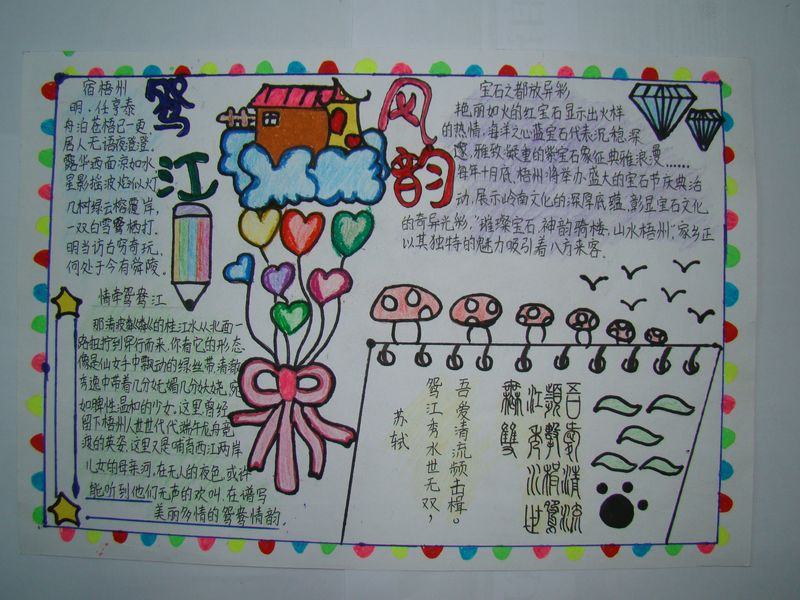 鸳江
风韵
宿梧州
明·任亨泰
舟泊苍梧已一更,
居人无语夜登登.
露华西面凉如水
星影摇波焰似灯
几树绿云榕覆岸,
一双白雪鹭栖打.
明当访古穷奇玩,
何处于今有舜陵.
情牵鸳鸯江
那清波粼粼的桂江水从北面一
路扭拧到穿行而来,你看它的形态
像是仙女手中飘动的绿丝带,清澈
秀逸中带着几分妩媚几分妖娆,宛
如脾性温和的少女,这里曾经
留下梧州人世世代代端午龙舟竞
渡的英姿.这里又是哺育西江两岸
儿女的母亲河,在无人的夜色,或许
能听到他们无声的欢叫,在谱写
美丽多情的鸳鸯情韵.
宝石之都放异彩
艳丽如火的红宝石显示出火样
的热情,海洋之心蓝宝石代表沉稳,深
邃,雅致凝重的紫宝石象征典雅浪漫……
每年十月底,梧州将举办盛大的宝石节庆典活
动,展示岭南文化的深厚底蕴,彰显宝石文化
的奇异光彩,“璀璨宝石,神韵骑楼,山水梧州”家乡正
以其独特的魅力吸引着八方来客.
吾爱清流频击楫。
鸳江秀水世无双,
苏轼
吾爱清流
频击楫鸳
江秀水世
无双